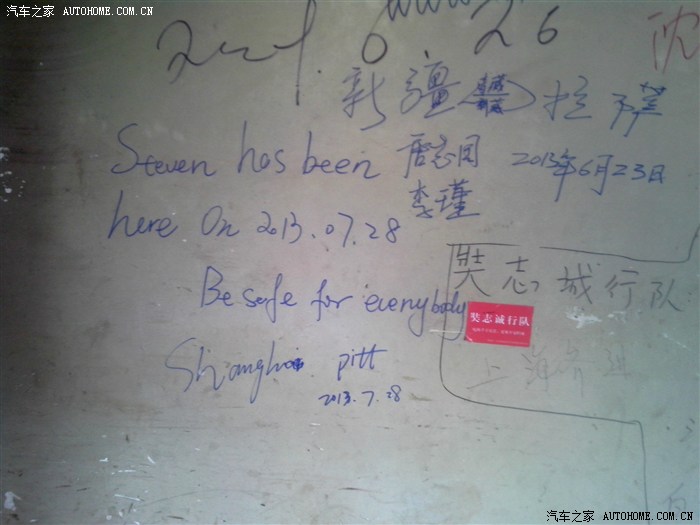 汽车之家 AUTOHOME.COM.CN
www
6 26
沈
新疆 拉萨
Steven has been
here On 2013.07.28
唐志国 2013年6月23日
李瑾
Be safe for everybody
Shanghai pitt
2013.7.28
奘志诚行队
奘志诚行队
上海
汽车之家 AUTOHOME.COM.CN